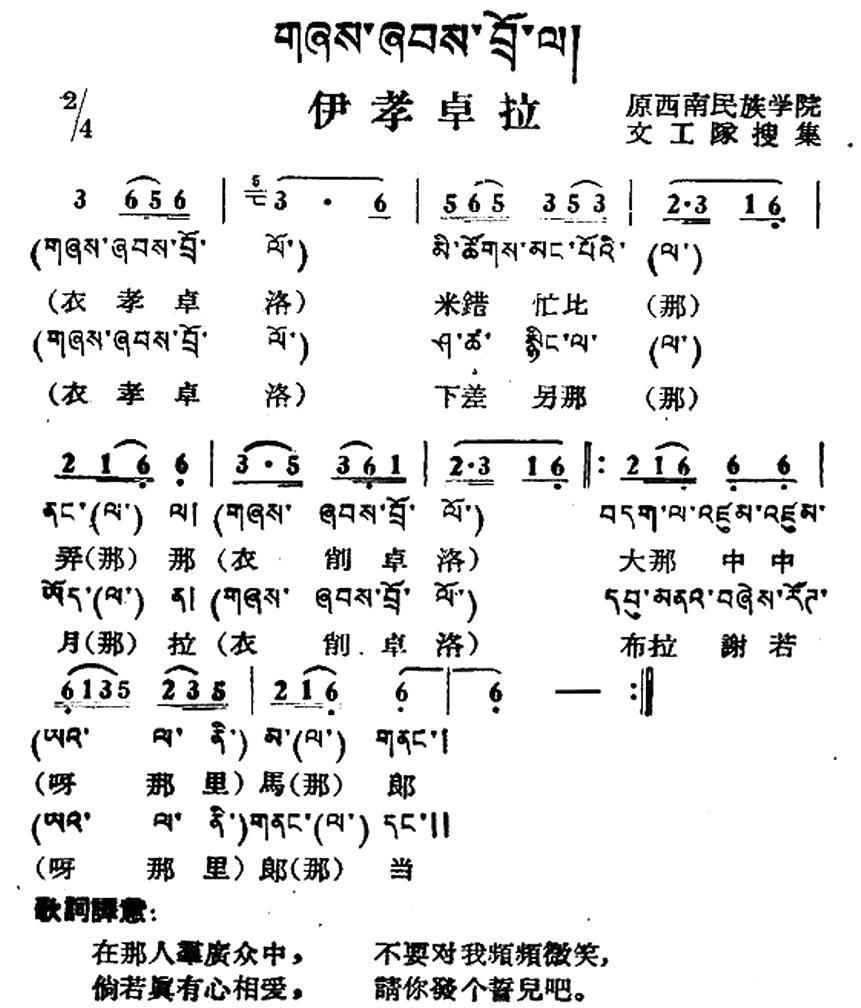 གཞས་ཞབས་བྲོ་ལ།
2/4
伊孝卓拉
原西南民族学院
文工隊搜集
3 6 5 6 | 3 · 6 | 5 6 5 3 5 3 | 2·3 1 6 |
(གཞས་ཞབས་བྲོ་ ལོ་) མི་ཚོགས་མང་པོའི་ (ལ་)
(衣孝卓 洛) 米錯 忙比 (那)
(གཞས་ཞབས་བྲོ་ ལོ་) ཤ་ཚ་ སྙིང་ལ་ (ལ་)
(衣孝卓 洛) 下差 另那 (那)
2 1 6 6 | 3·5 3 6 1 | 2·3 1 6 ‖: 2 1 6 6 6 |
ནང་(ལ་) ལ། (གཞས་ ཞབས་བྲོ་ ལོ་) བདག་ལ་འཛུམ་འཛུམ་
弄(那) 那 (衣 削卓 洛) 大那 中中
ཡོད་(ལ་) ན། (གཞས་ ཞབས་བྲོ་ ལོ་) དབུ་མནའ་བཞེས་རོཊ་
月(那) 拉 (衣 削卓 洛) 布拉 謝若
6 1 3 5 2 3 5 | 2 1 6 6 | 6 — :‖
(ཡའ་ ལ་ ནི་) མ་(ལ་) གནང་།
(呀 那 里) 馬(那) 郎
(ཡའ་ ལ་ ནི་) གནང་(ལ་) དང་།།
(呀 那 里) 郎(那) 当
歌詞譯意:
在那人羣廣众中， 不要对我頻頻微笑，
倘若眞有心相爱， 請你發个誓兒吧。